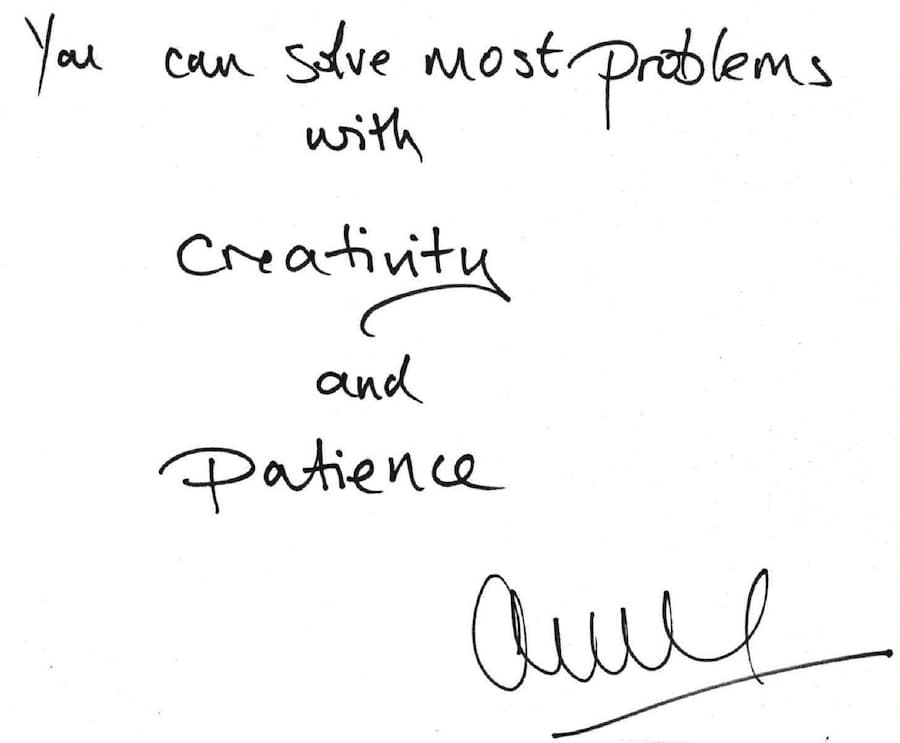 You can solve most problems
with
Creativity
and
Patience